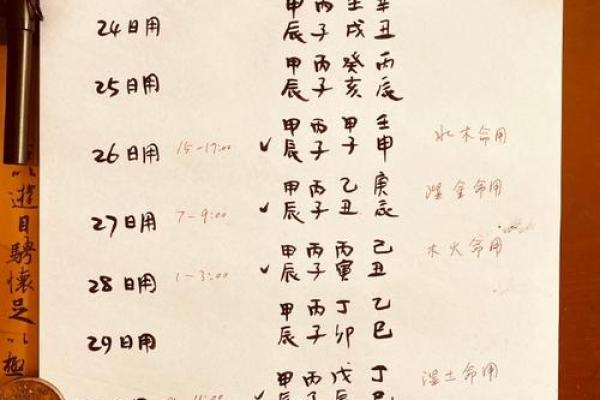 甲 丙 壬 辛
24日用 辰 子 戌 丑
甲 丙 癸 丙
25日用 辰 子 亥 辰
甲 丙 甲 壬
26日用 15-17:00 ✓ 辰 子 子 申 水木命用
甲 丙 乙 庚
27日用 7-9:00 ✓ 辰 子 丑 辰 湿金命用
甲 丙 丙 己
28日用 1-3:00 ✓ 辰 子 寅 丑 木火命用
甲 丙 丁 乙
29日用 辰 子 卯 巳
甲 丙 戊 丁
日用 11:00 ✓ 辰 子 辰 巳 湿土命用
以遊目騁懷足以極